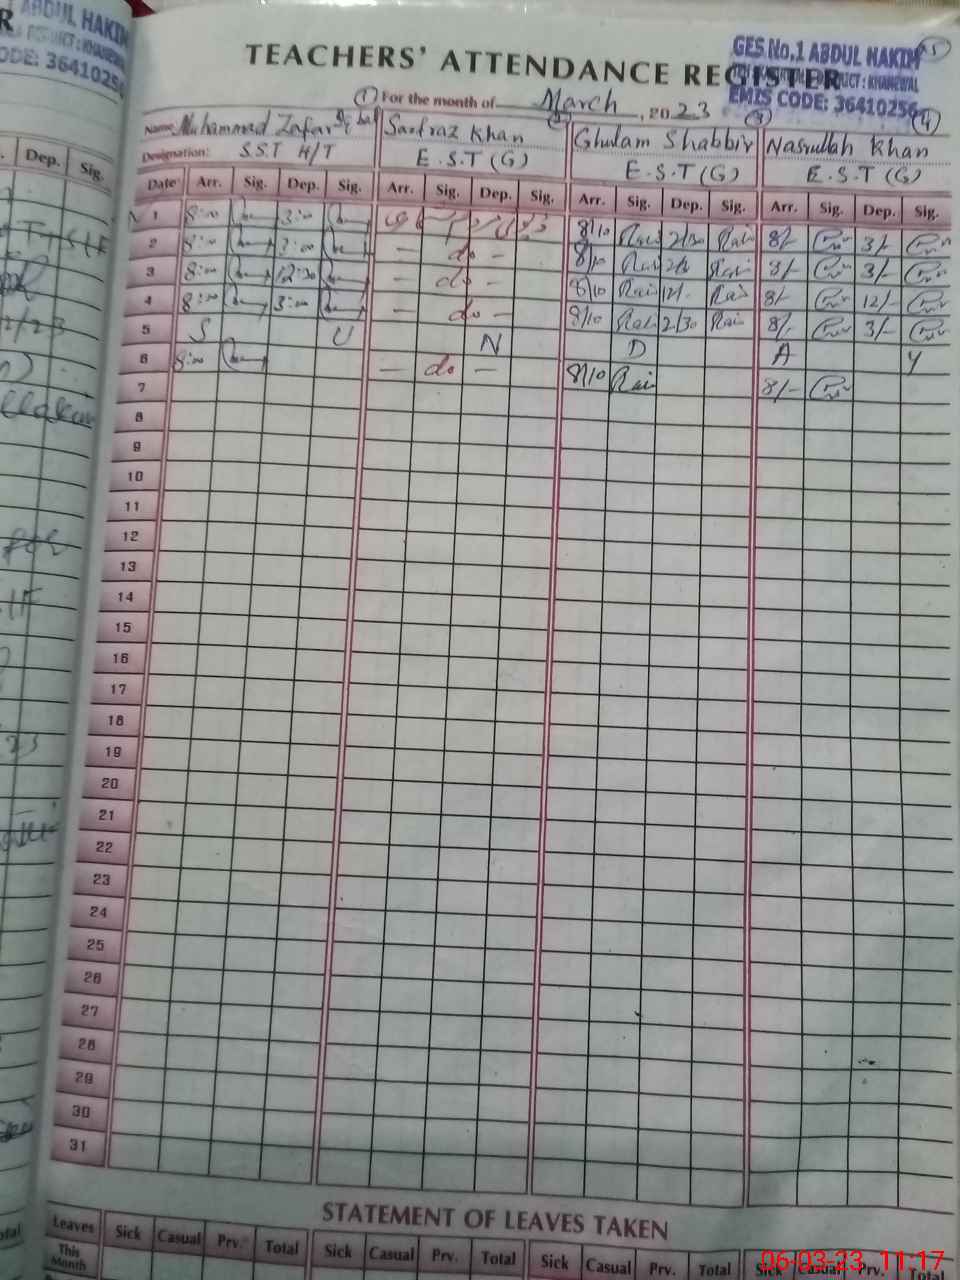 ABDUL HAKIM
CODE: 36410256
TEACHERS' ATTENDANCE REGISTER
GES No.1 ABDUL HAKIM
EMIS CODE: 36410256
For the month of March, 2023
① ② ③ ④
Name Muhammad Zafar Iqbal Sarfraz Khan Ghulam Shabbir Nasrullah Khan
Designation: S.S.T H/T E.S.T (G) E.S.T (G) E.S.T (G)
Dep. Sig.
Date Arr. Sig. Dep. Sig. Arr. Sig. Dep. Sig. Arr. Sig. Dep. Sig. Arr. Sig. Dep. Sig.
1 8:00 3:00 8/10 Rai 2/30 Rai 8/- 3/-
2 8:00 3:00 — do — 8/10 Rai Rai 8/- 3/-
3 8:00 12:30 — do — 8/10 Rai 12/- Rai 8/- 12/-
4 8:00 3:00 — do — 8/10 Rai 2/30 Rai 8/- 3/-
5 S U N D A Y
6 8:00 — do — 8/10 Rai 8/-
7
8
9
10
11
12
13
14
15
16
17
18
19
20
21
22
23
24
25
26
27
28
29
30
31
STATEMENT OF LEAVES TAKEN
Leaves Sick Casual Prv. Total Sick Casual Prv. Total Sick Casual Prv. Total Sick Casual Prv. Total
This Month
06-03-23 11:17